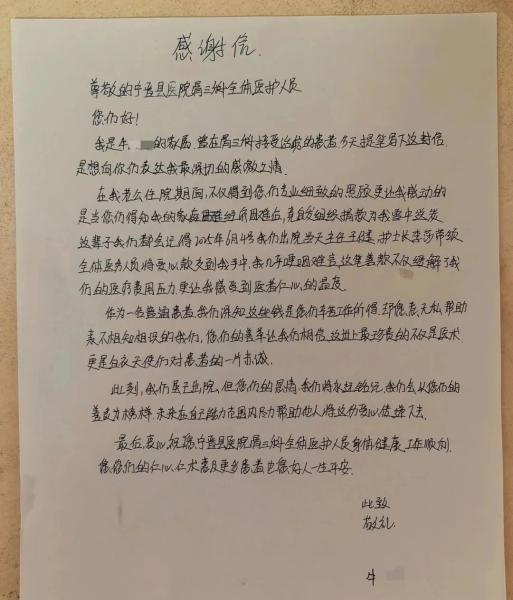 感谢信.
尊敬的宁晋县医院胃三科全体医护人员
您们好!
我是牛 的家属.曾在胃三科接受治疗的患者.今天提笔写下这封信
是想向你们表达我最深切的感激之情
在我老公住院期间,不仅得到您们专业细致的照顾更让我感动的
是当您们得知我的家庭困难经济困难后,竟自发组织捐款为我雪中送炭
这辈子我们都会记得2025年6月4号我们出院当天主任王健.护士长李莎带领
全体医务人员将爱心款交到我手中,我们哽咽难言,这笔善款不仅缓解了我
们的医疗费用压力.更让我感受到医者仁心的温度
作为一名普通患者.我们深知这些钱是你们辛苦工作所得.却愿意无私帮助
素不相知相识的我们,您们的善举让我们相信.这世上最珍贵的不仅是医术
更是白衣天使们对患者的一片赤诚.
此刻,我们虽已出院.但您们的恩情.我们将永远铭记.我们会以您们的
善良为榜样.未来在自己能力范围内尽力帮助他人将这份爱心传递下去.
最后,衷心祝愿宁晋县医院胃三科全体医护人员身体健康.工作顺利.
愿您们的仁心.仁术惠及更多患者也愿好人一生平安.
此致
敬礼.
牛